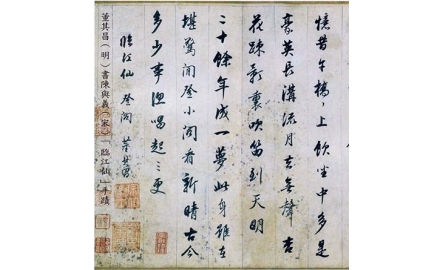 憶昔午橋〻上飲坐中多是
豪英長溝流月去無聲杏
花踈影裏吹笛到天明
二十餘年成一夢此身雖在
堪驚閒登小閣看新晴古今
多少事漁唱起三更
臨江仙 登閣 董其昌
董其昌(明)書陳與義(宋)「臨江仙」手蹟